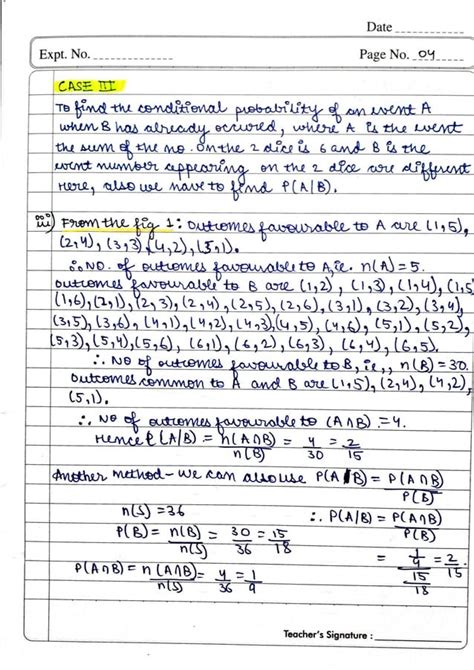 Date
Expt. No.
Page No. 04
CASE III
To find the conditional probability of an event A
when B has already occured, where A is the event
the sum of the no. on the 2 dice is 6 and B is the
event number appearing on the 2 dice are different
Here, also we have to find P(A|B).
iii) From the fig 1: Outcomes favourable to A are (1,5),
(2,4), (3,3), (4,2), (5,1).
∴ No. of outcomes favourable to A, i.e. n(A) = 5.
Outcomes favourable to B are (1,2), (1,3), (1,4), (1,5
(1,6), (2,1), (2,3), (2,4), (2,5), (2,6), (3,1), (3,2), (3,4),
(3,5), (3,6), (4,1), (4,2), (4,3), (4,5), (4,6), (5,1), (5,2),
(5,3), (5,4), (5,6), (6,1), (6,2), (6,3), (6,4), (6,5).
∴ No of outcomes favourable to B, i.e., n(B) = 30.
Outcomes common to A and B are (1,5), (2,4), (4,2),
(5,1).
∴ No of outcomes favourable to (A∩B) = 4.
Hence P(A|B) = n(A∩B)/n(B) = 4/30 = 2/15
Another method - We can also use P(A|B) = P(A∩B)/P(B)
n(S) = 36
∴ P(A|B) = P(A∩B)/P(B)
P(B) = n(B)/n(S) = 30/36 = 15/18
= 1/9 / 15/18 = 2/15
P(A∩B) = n(A∩B)/n(S) = 4/36 = 1/9
Teacher's Signature :